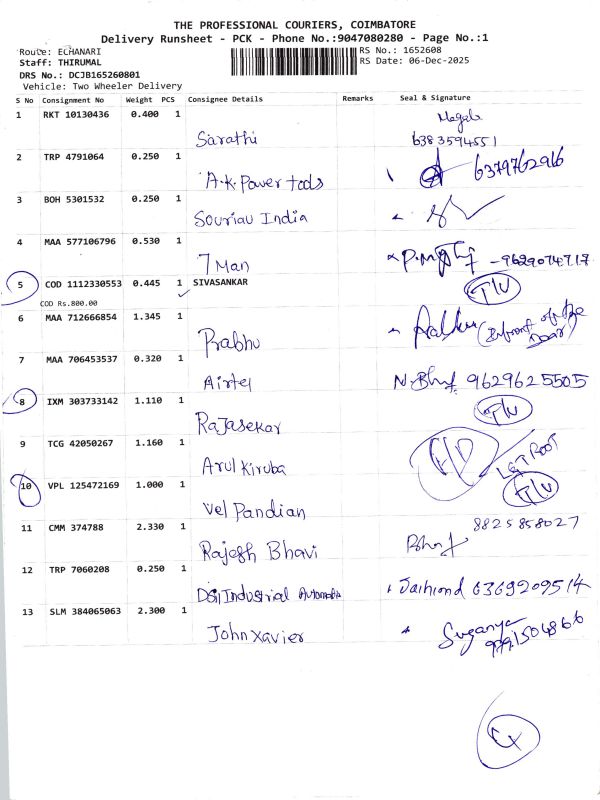 THE PROFESSIONAL COURIERS, COIMBATORE
Delivery Runsheet - PCK - Phone No.:9047080280 - Page No.:1
Route: ECHANARI
RS No.: 1652608
Staff: THIRUMAL
RS Date: 06-Dec-2025
DRS No.: DCJB165260801
Vehicle: Two Wheeler Delivery
S No Consignment No Weight PCS Consignee Details Remarks Seal & Signature
1 RKT 10130436 0.400 1
Sarathi
6383594551
2 TRP 4791064 0.250 1
A.K. Power tools 6379762966
3 BOH 5301532 0.250 1
Souriau India
4 MAA 577106796 0.530 1
7 Man
5 COD 1112330553 0.445 1 SIVASANKAR
COD Rs.800.00
6 MAA 712666854 1.345 1
Prabhu
7 MAA 706453537 0.320 1
Airtel 9629625505
8 IXM 303733142 1.110 1
Rajasekar
9 TCG 42050267 1.160 1
Arul Kiruba
10 VPL 125472169 1.000 1
Vel Pandian
11 CMM 374788 2.330 1 8825858027
Rajesh Bhavi
12 TRP 7060208 0.250 1
Industrial 6369209514
13 SLM 384065063 2.300 1
John Xavier Suganya